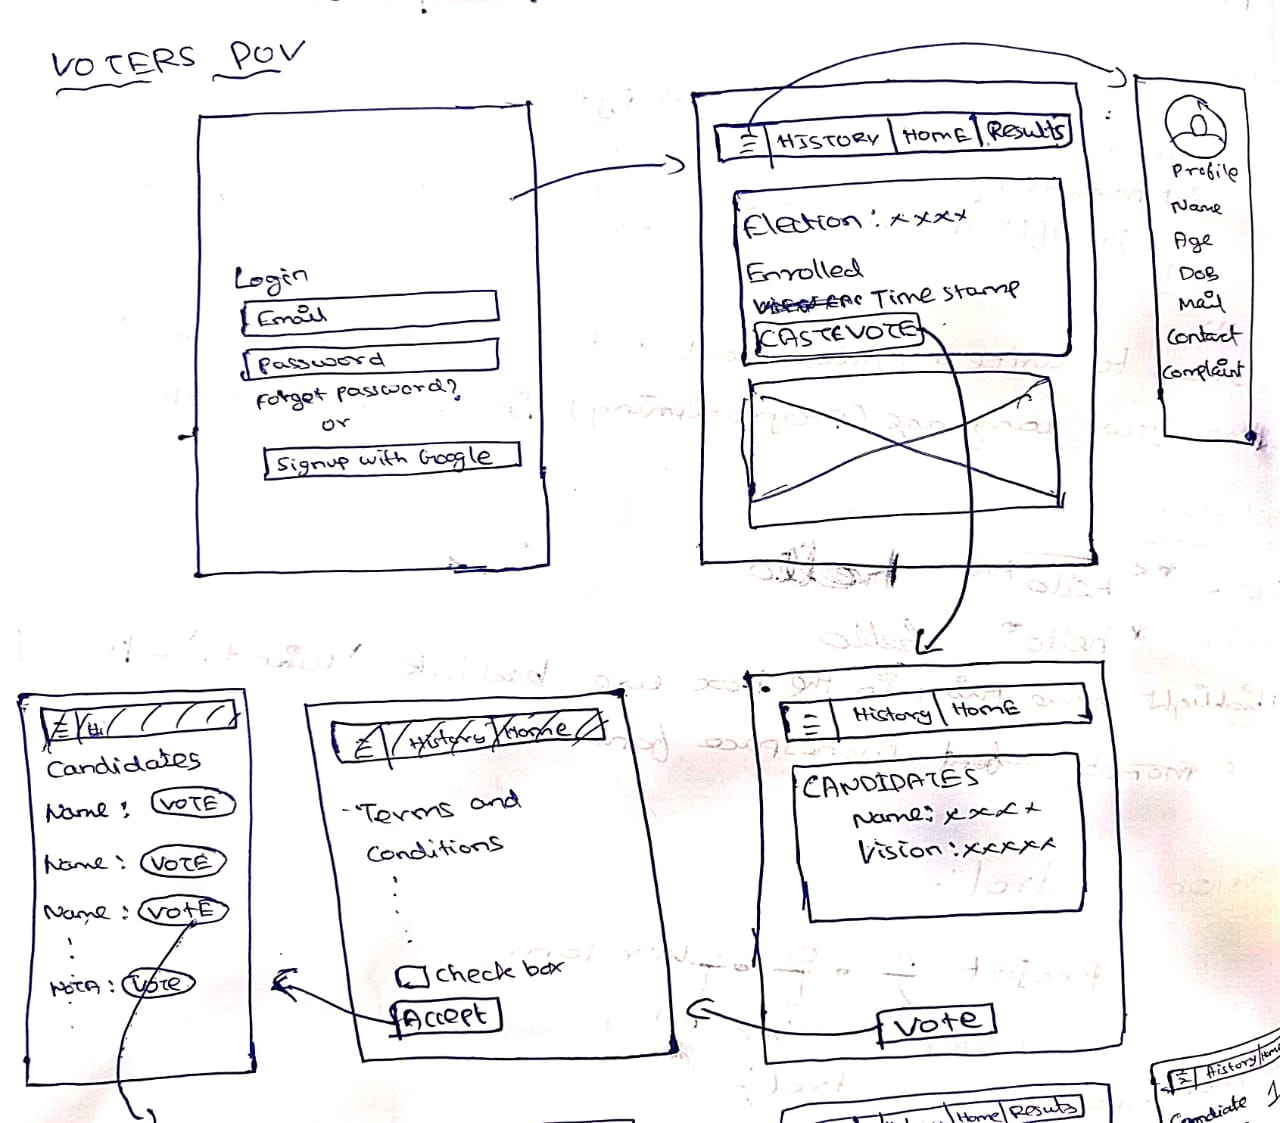 VOTERS POV
Login
Email
Password
Forget password?
or
Signup with Google
☰ HISTORY HOME Results
Election : xxxx
Enrolled
Time stamp
CASTEVOTE
Profile
Name
Age
DOB
Mail
Contact
Complaint
☰ History HOME
CANDIDATES
Name: xxxx
Vision :xxxxx
Vote
☰ History Home
- Terms and
Conditions
check box
Accept
☰ Hi
Candidates
Name : VOTE
Name : VOTE
Name : VOTE
NOTA : Vote
Home Results
☰ History Home
Candiate 1